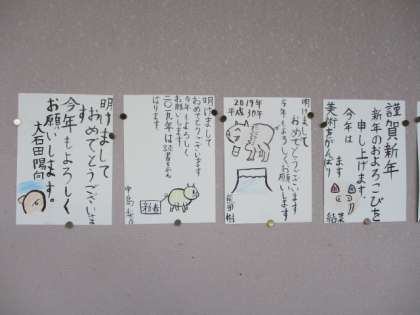 明けまして
おめでとうございま
す
今年もよろしく
お願いします。
大石田陽向
明けまして
おめでとうございます
今年もよろしく
お願いします!
二〇一九年は
明けまして
おめでとうございます
今年もよろしくお願いします
2019年
平成30年
謹賀新年
新年のおよろこびを
申し上げます。
今年は
美術をがんばり
ます
結菜